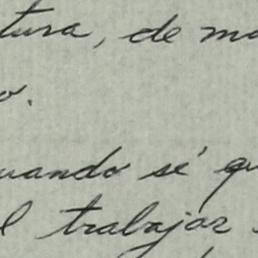 tura, de ma
o.
uando sé qu
l trabajar